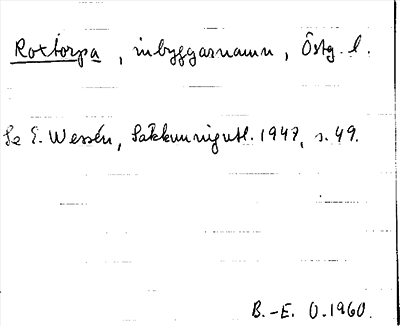 Roxtorpa, inbyggarnamn, Östg. l.
Se E. Wessén, Sakkunnigutl. 1947, s. 49.
B.-E. O. 1960.